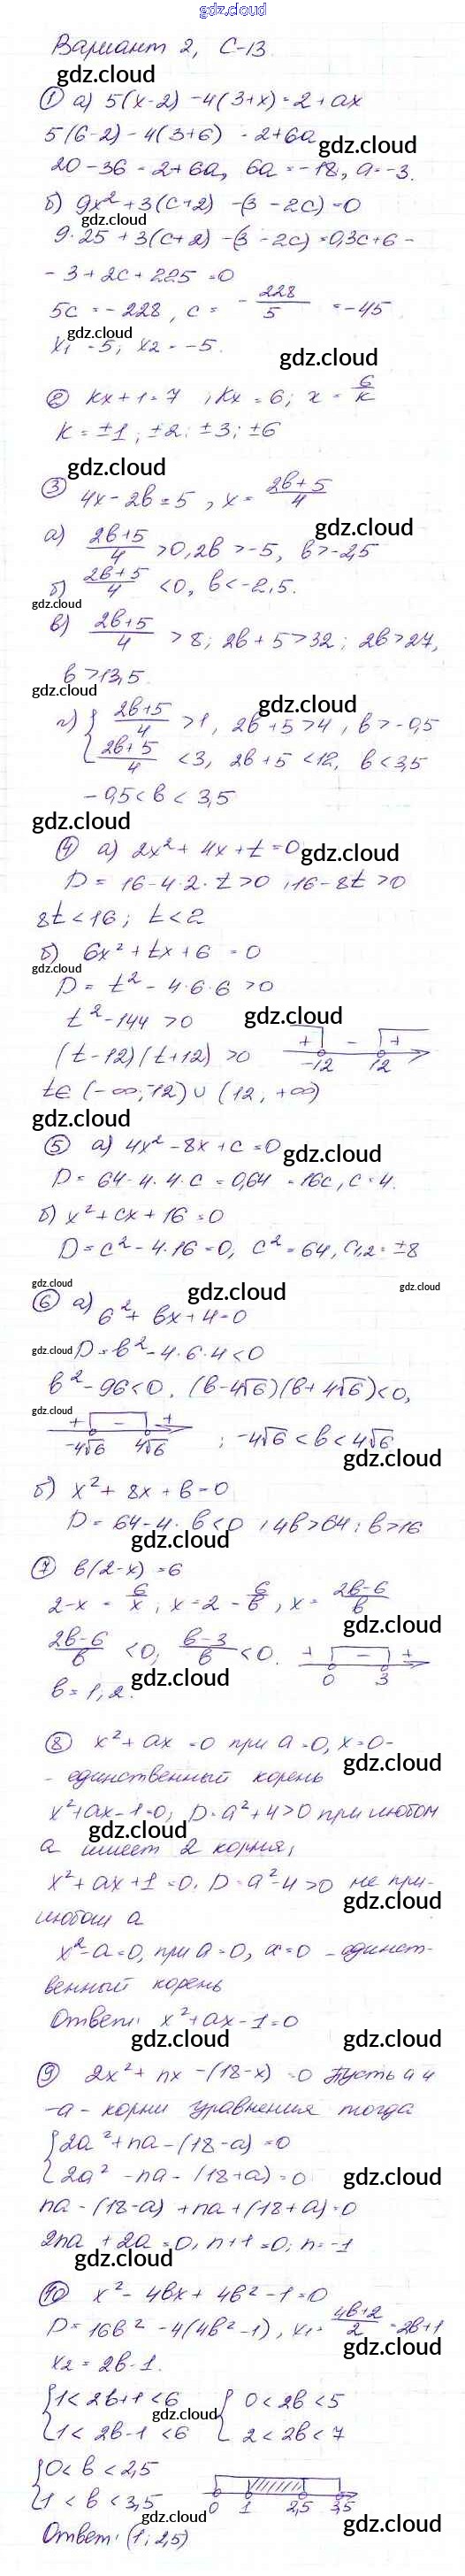 gdz.cloud
Вариант 2, С-13
gdz.cloud
① а) 5(x-2) -4(3+x) = 2+ax
5(6-2) - 4(3+6) = 2+6a
gdz.cloud
20-36 = 2+6a, 6a = -18, a = -3.
б) 9x² + 3(c+2) - (3-2c) = 0
gdz.cloud
9·25 + 3(c+2) - (3-2c) = 0, 3c+6 -
- 3+2c+225 = 0
5c = -228, c = - 228/5 = -45
gdz.cloud
x₁ = 5; x₂ = -5.
gdz.cloud
② kx+1=7 ; kx = 6; x = 6/k
k = ±1; ±2; ±3; ±6
gdz.cloud
③ 4x-2b=5, x = (2b+5)/4
gdz.cloud
а) (2b+5)/4 >0, 2b >-5, b>-2,5
б) (2b+5)/4 <0, b<-2,5.
gdz.cloud
в) (2b+5)/4 > 8; 2b+5>32; 2b>27,
b>13,5.
gdz.cloud
gdz.cloud
г) { (2b+5)/4 >1, 2b+5>4, b>-0,5
{ (2b+5)/4 <3, 2b+5<12, b<3,5
-0,5<b<3,5
gdz.cloud
④ а) 2x²+4x+t=0
gdz.cloud
D = 16-4·2·t>0 ; 16-8t>0
8t<16; t<2
б) 6x²+tx+6 = 0
gdz.cloud
D = t²-4·6·6 >0
t²-144 >0
gdz.cloud
(t-12)(t+12) >0 + - +
-12 12
t∈ (-∞; -12)∪(12, +∞)
gdz.cloud
⑤ а) 4x²-8x+c=0
gdz.cloud
D = 64-4·4·c = 0, 64 = 16c, c=4.
б) x²+cx+16=0
D = c²-4·16=0, c²=64, c₁,₂=±8
gdz.cloud
gdz.cloud
gdz.cloud
⑥ а) 6²+bx+4=0
gdz.cloud
D=b²-4·6·4<0
b²-96<0, (b-4√6)(b+4√6)<0,
gdz.cloud
+ - +
-4√6 4√6 ; -4√6<b<4√6
gdz.cloud
б) x²+8x+b=0
D = 64-4·b<0 ; 4b>64; b>16
gdz.cloud
⑦ b(2-x)=6
2-x = 6/x ; x=2 - 6/b, x = (2b-6)/b
gdz.cloud
(2b-6)/b <0; (b-3)/b <0. + - +
0 3
gdz.cloud
b=1, 2.
⑧ x²+ax=0 при a=0, x=0-
gdz.cloud
- единственный корень
x²+ax-1=0; D=a²+4>0 при любом
gdz.cloud
a имеет 2 корня,
x²+ax+1=0, D=a²-4>0 не при-
gdz.cloud
любом a
x²-a=0, при a=0, x=0 - единст-
венный корень
Ответ: x²+ax-1=0
gdz.cloud
gdz.cloud
⑨ 2x²+nx-(18-x)=0 Пусть a и
-a - корни уравнения тогда
{ 2a²+na-(18-a)=0
{ 2a²-na-(18+a)=0
gdz.cloud
na-(18-a)+na+(18+a)=0
2na+2a=0, n+1=0; n=-1
gdz.cloud
⑩ x²-4bx+4b²-1=0
D=16b²-4(4b²-1), x₁= (4b+2)/2 =2b+1
gdz.cloud
x₂=2b-1.
{ 1<2b+1<6 { 0<2b<5
gdz.cloud
{ 1<2b-1<6 { 2<2b<7
{ 0<b<2,5
{ 1<b<3,5 0 1 2,5 3,5
gdz.cloud
gdz.cloud
Ответ: (1; 2,5)